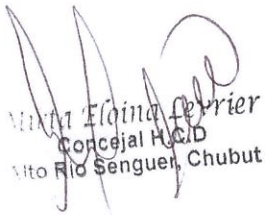 Mirta Elgina Levrier
Concejal H.C.D
Alto Rio Senguer, Chubut